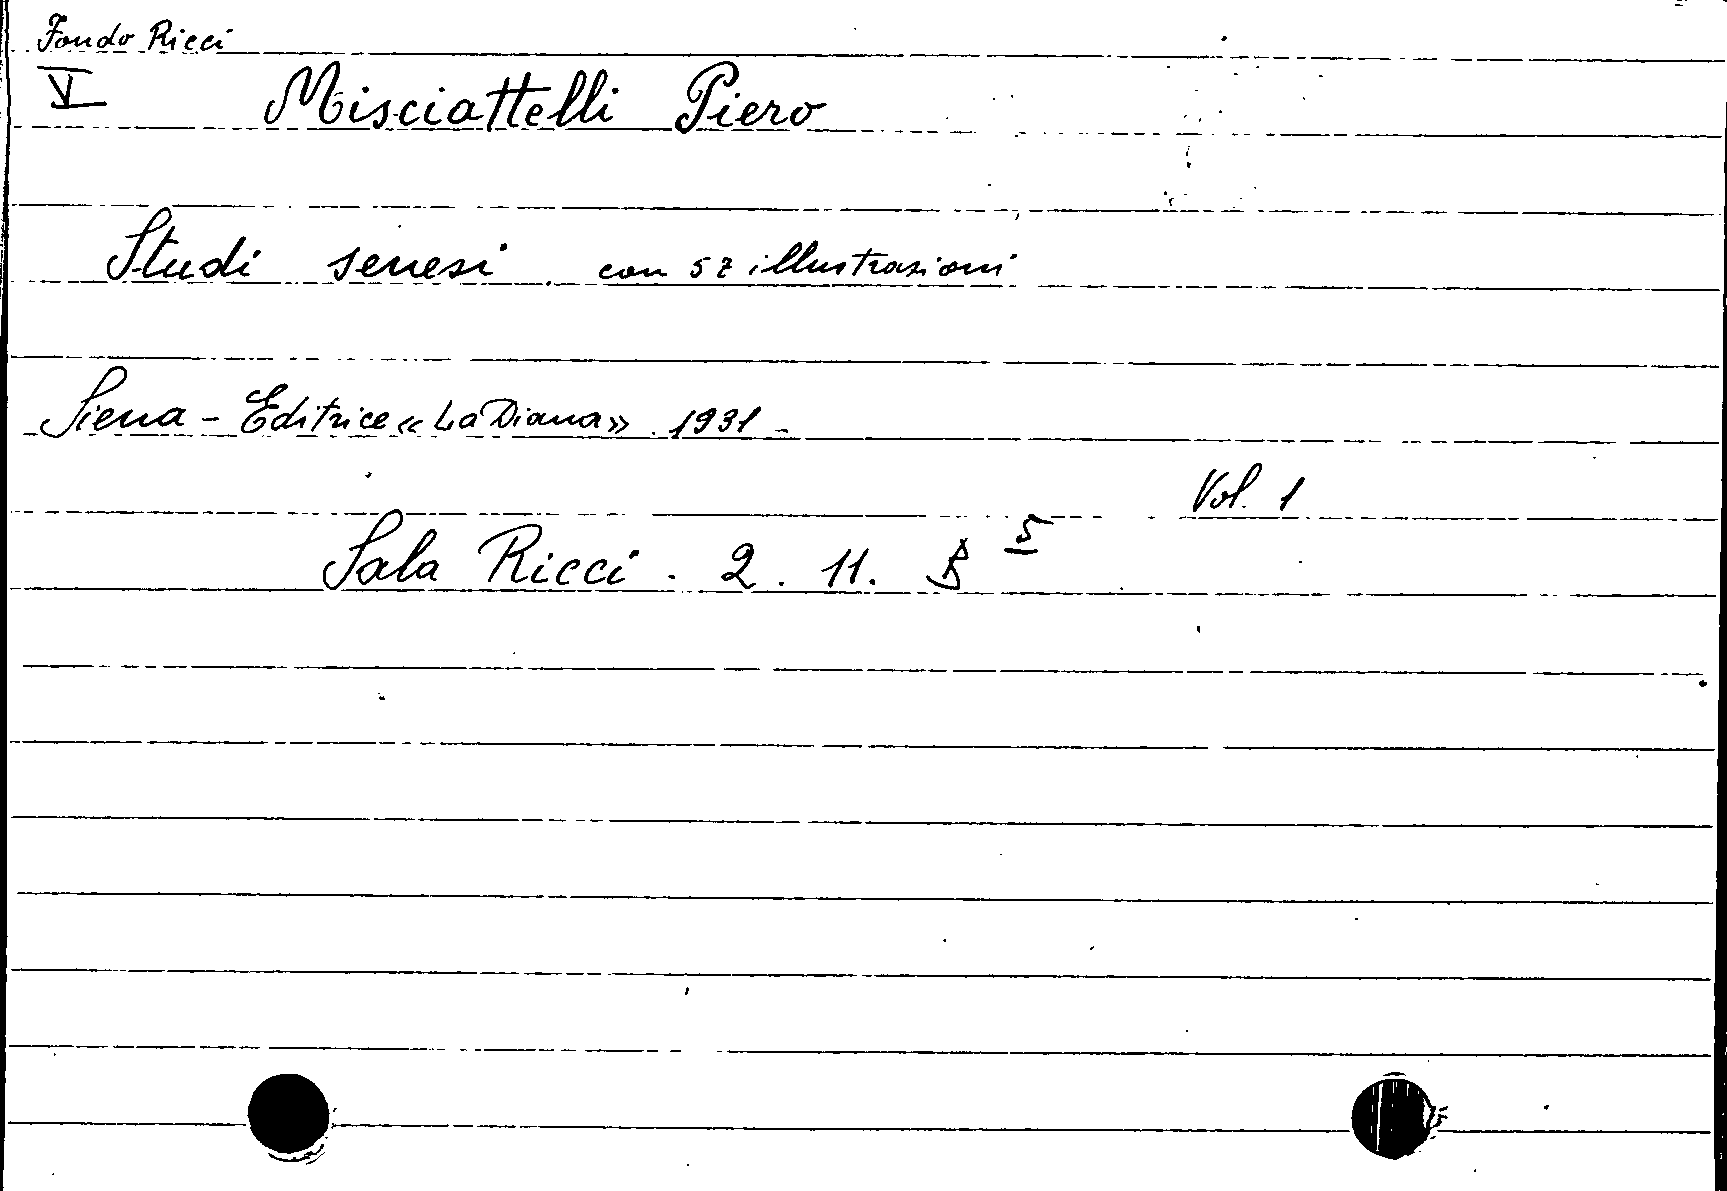 Fondo Ricci
V Misciattelli Piero
Studi senesi con 52 illustrazioni
Siena - Editrice «La Diana» 1931 -
Vol. 1
Sala Ricci . 2 . 11. B 5